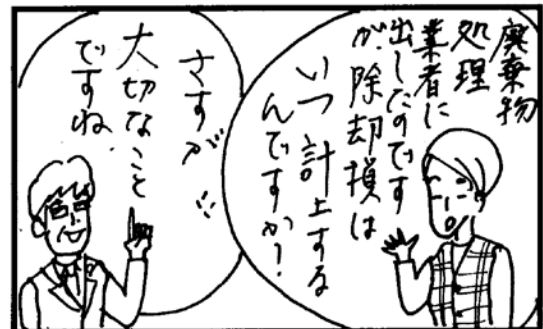 廃棄物
処理
業者に
出したのです
が、除却損は
いつ計上する
んですか?
さすが!!
大切なこと
ですね